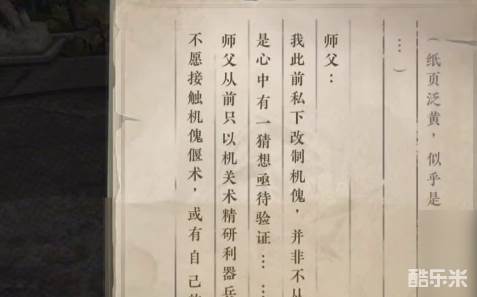 （纸页泛黄，似乎是
…）
师父：
我此前私下改制机傀，并非不从
是心中有一猜想亟待验证……
师父从前只以机关术精研利器兵
不愿接触机傀偃术，或有自己
酷乐米